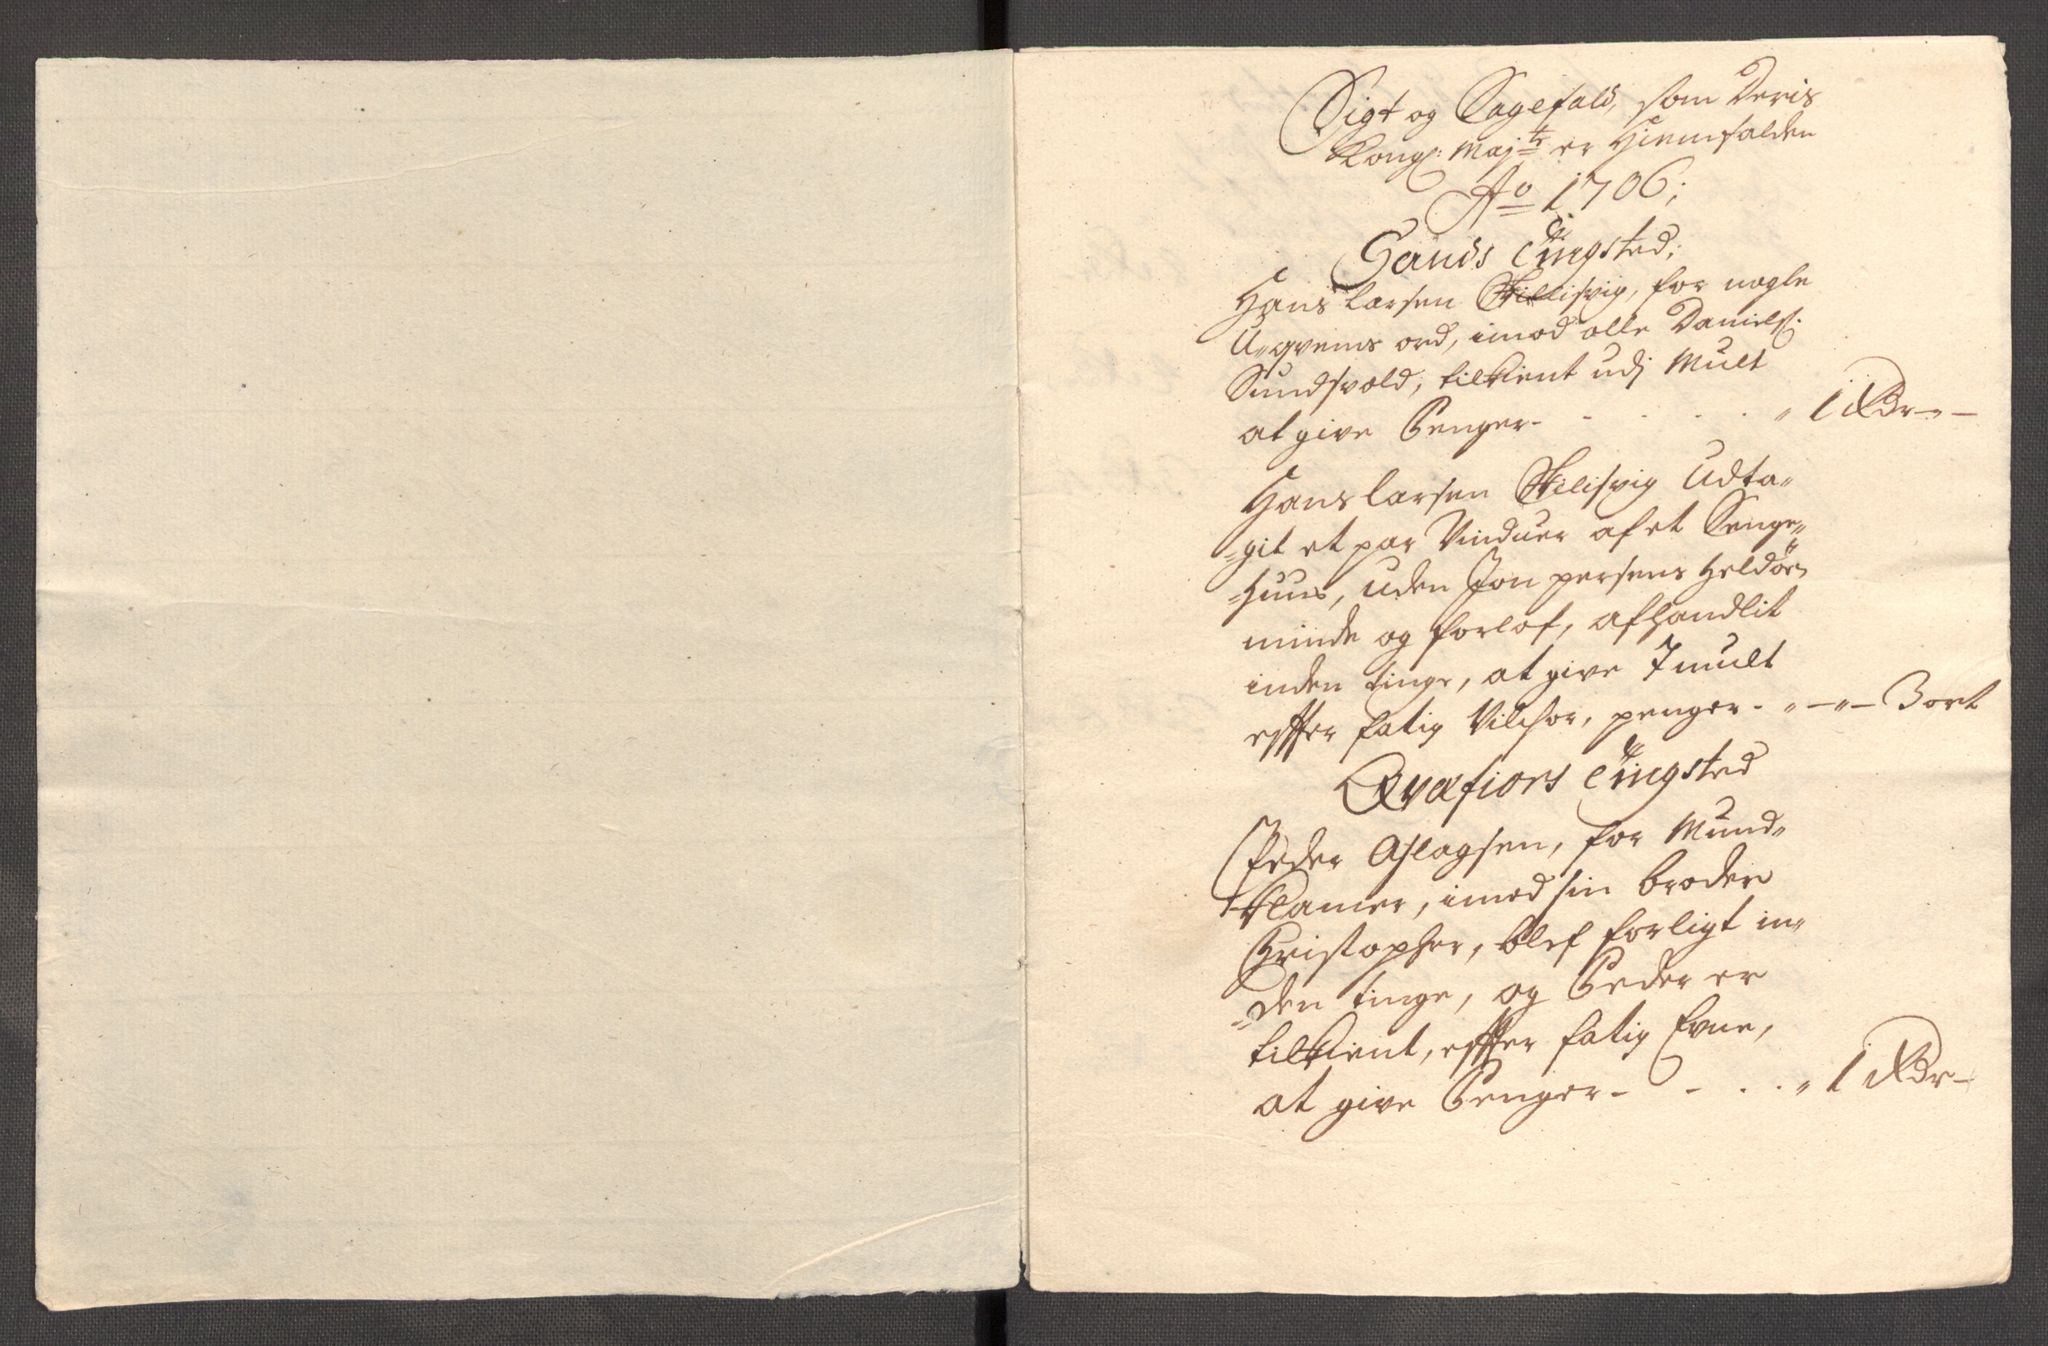 Sigt og Sagefald, som Deris
Kongl: Majts er Hiemfalden
Ao 1706;
Sands Tingsted;
Hans Larsen Killisvig, for nogle
U-qvems ord, imod olle Daniels:
Sundsvold, tilkient udj Mult
at give Penger - 1 Rdr - " -
Hans Larsen Kilisvig Udta-
-git et par Vinduer af et Senge-
-huus, uden Jon persens Heldøes
minde og forlof, afhandlit
inden tinge, at give I mult
effter fatig Vilchor, penger - " - " - 3 ort
Qvæfiors Tingsted
Peder Aslagsen, for Mund-
-klamer, imod sin broder
Christopher, blef forligt in-
-den tinge, og Peder er
tilkient, effter fatig Evne,
at give Penger - - . . " 1 Rdr -